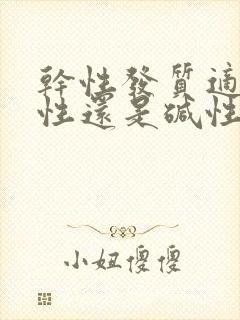 幹性發質適
性還是碱性
小妞傻傻